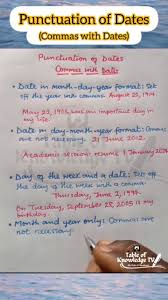 Punctuation of Dates
(Commas with Dates)
Punctuation of Dates
Commas with Dates
• Date in month-day-year format: Set
off the year with commas. August 23, 1914
May 23, 1905, was an important day in
my life.
• Date in day-month-year format: Commas
are not necessary. 21 June 2012.
Academic session resumes 1 January
• Day of the week and a date: Set off
the day of the week with a comma.
Thursday, June 2, 1999.
On Tuesday, September 28, 2015 is my
birthday.
• Month and year only: Commas
are not necessary.
Table of
Knowledge TV